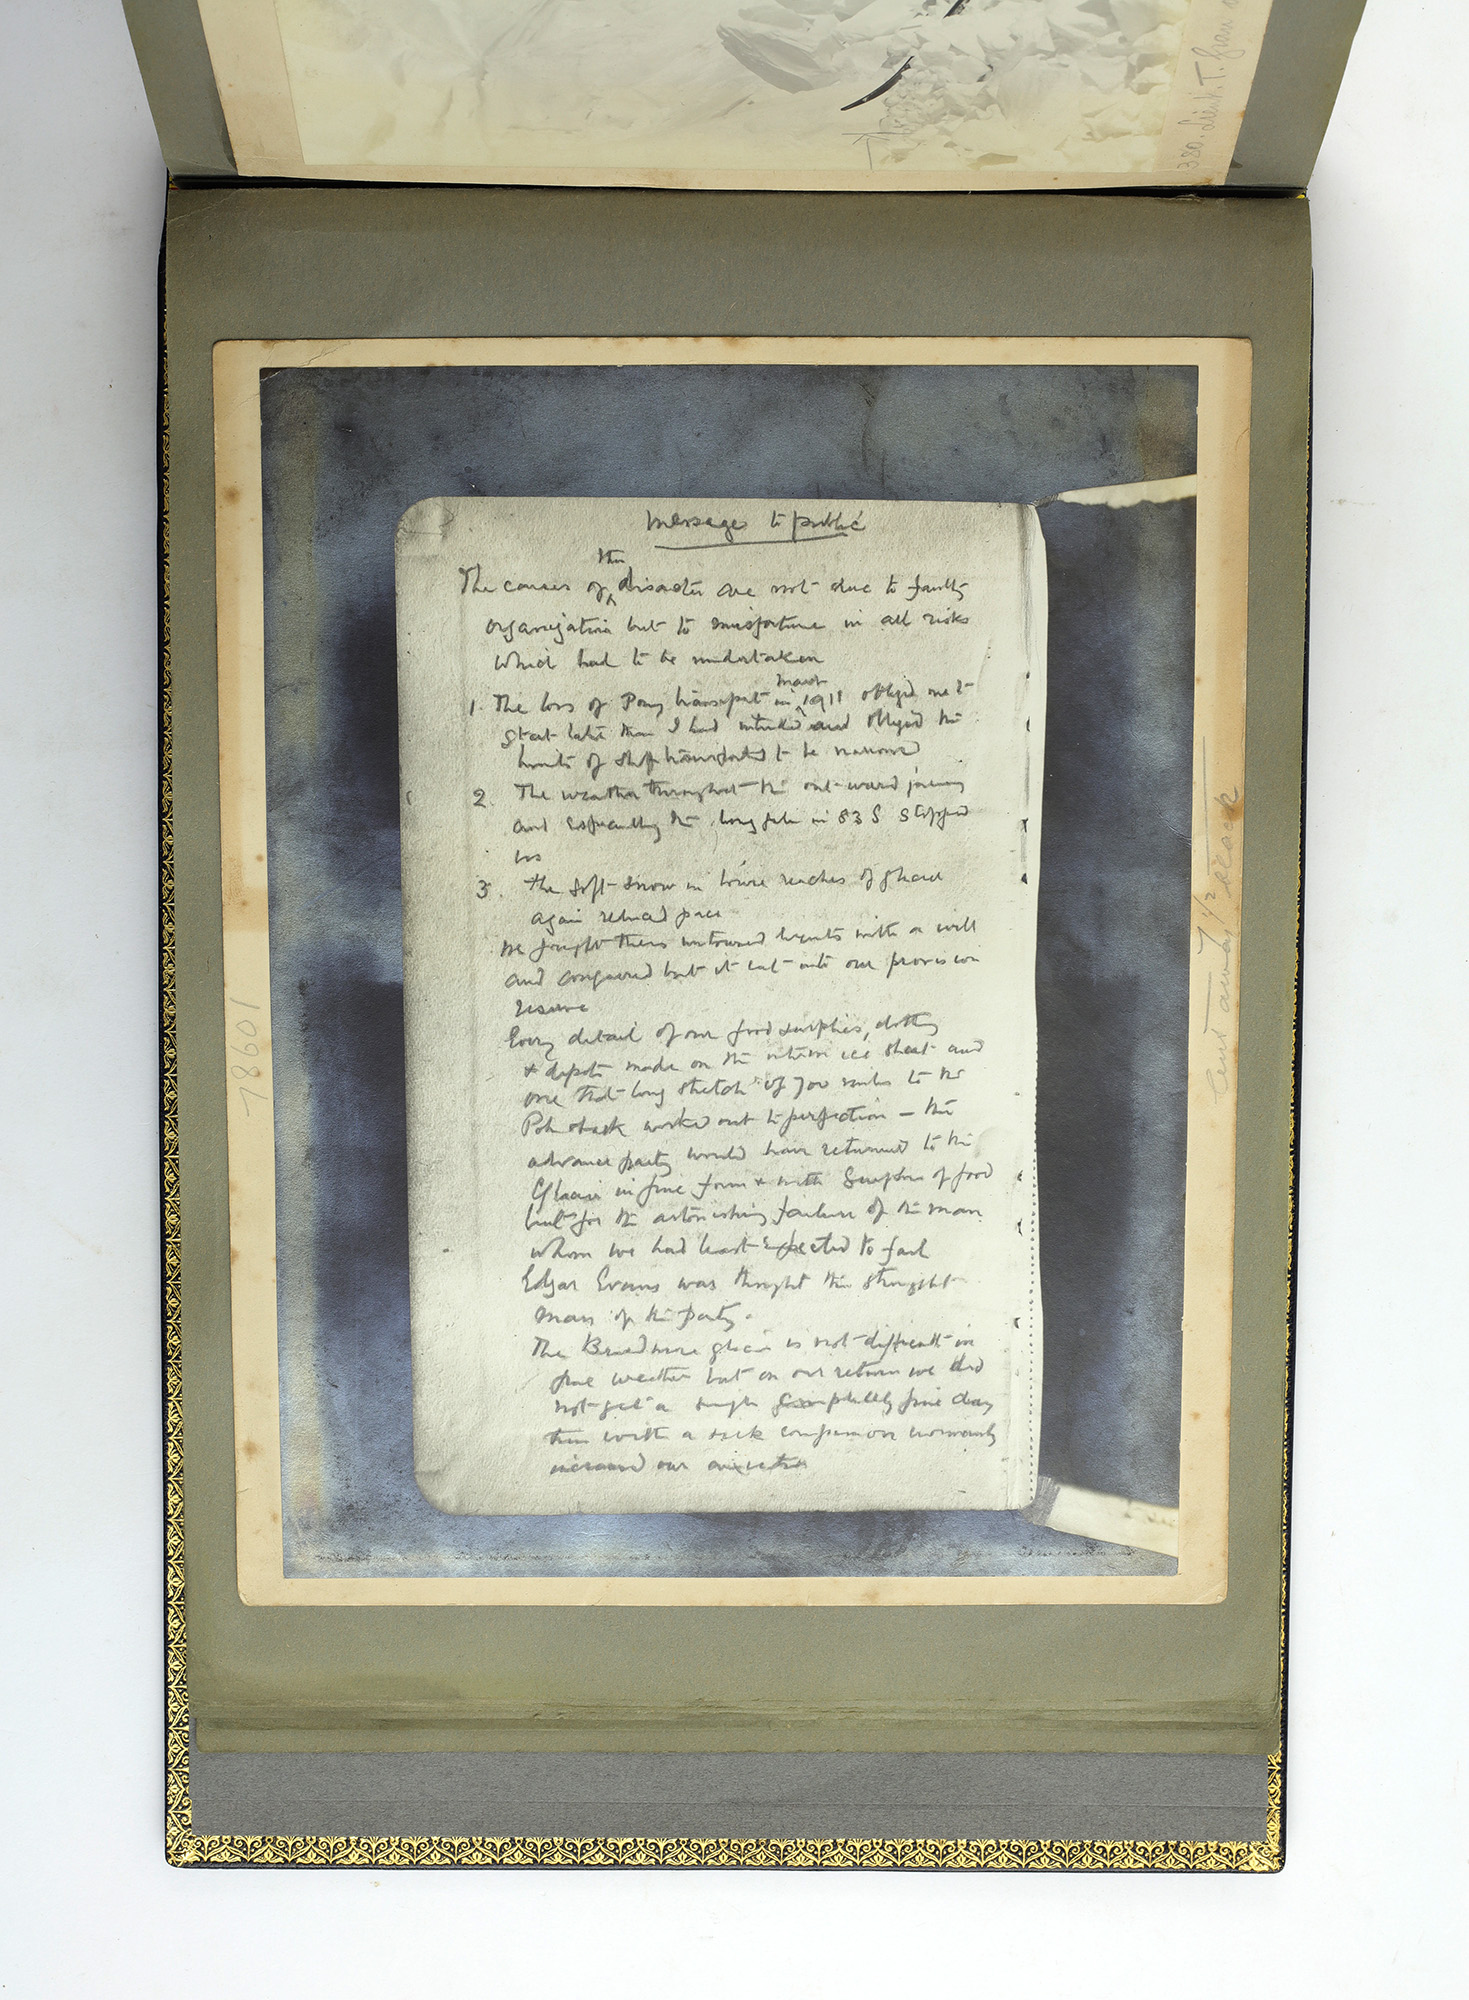 380. Lieut. T. Gran
Message to public
the
The causes of disaster are not due to faulty
organization but to misfortune in all risks
which had to be undertaken
March
1. The loss of Pony transport in 1911 obliged me to
start later than I had intended and obliged the
limits of stuff transported to be narrowed
2. The weather throughout the outward journey
and especially the long gale in 83 S stopped
us
3. The soft snow in lower reaches of glacier
again reduced pace
We fought these untoward events with a will
and conquered but it cut into our provision
reserve
Every detail of our food supplies, clothing
& depots made on the interior ice sheet and
over that long stretch of 700 miles to the
Pole & back worked out to perfection – the
advance party would have returned to the
Glacier in fine form & with surplus of food
but for the astonishing failure of the man
whom we had least expected to fail
Edgar Evans was thought the strongest
man of the party.
The Beardmore glacier is not difficult in
fine weather but on our return we did
not get a single completely fine day
this with a sick companion enormously
increased our anxieties
78601
7 1/2 black